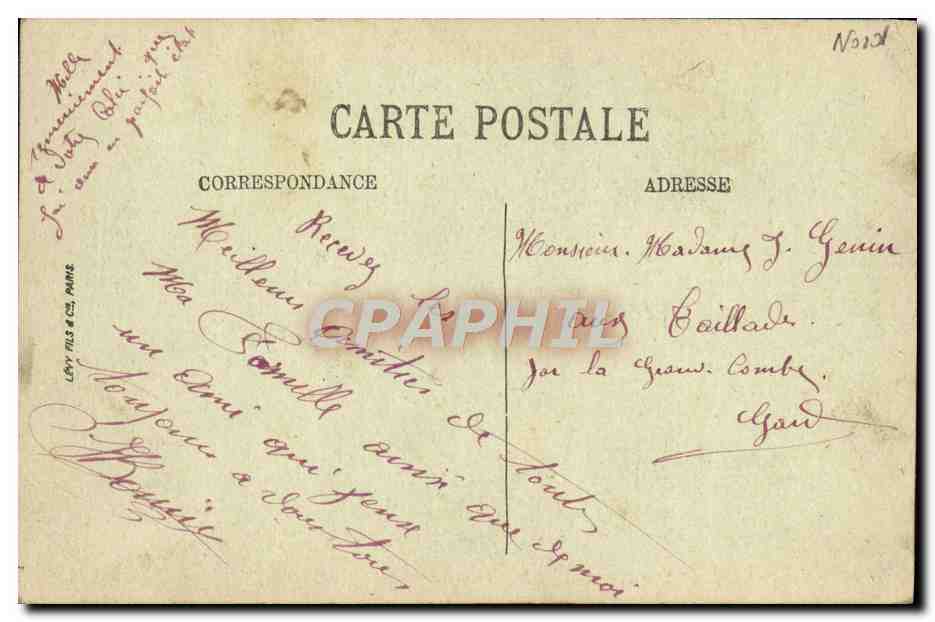 Nord
Mille
remerciement
de votre Colis que
j'ai eu en parfait état
CARTE POSTALE
CORRESPONDANCE
ADRESSE
Recevez les
Meilleurs amitiés de toute
Ma Famille ainsi que de moi
un ami qui pense
Toujours a vous tous
Monsieur. Madame J. Genin
aux Taillades.
par la Grand. Combe.
Gard
LÉVY FILS & Cie, PARIS.
CPARHIL